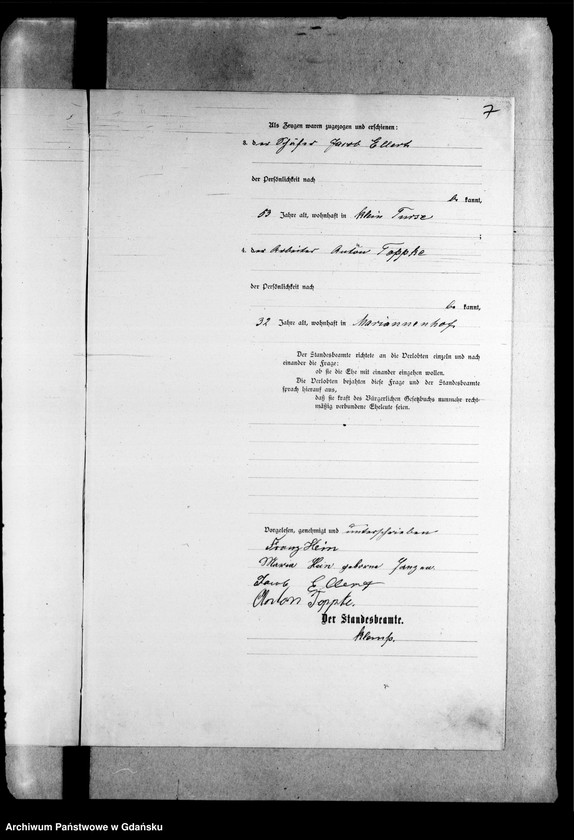 7
Als Zeugen waren zugezogen und erschienen:
3. der Schäfer Jacob Ellert
der Persönlichkeit nach
be kannt,
63 Jahre alt, wohnhaft in Klein Turze
;
4. der Arbeiter Anton Toppke
der Persönlichkeit nach
be kannt,
32 Jahre alt, wohnhaft in Mariannenhof.
Der Standesbeamte richtete an die Verlobten einzeln und nach
einander die Frage:
ob sie die Ehe mit einander eingehen wollen.
Die Verlobten bejahten diese Frage und der Standesbeamte
sprach hierauf aus,
daß sie kraft des Bürgerlichen Gesetzbuchs nunmehr recht-
mäßig verbundene Eheleute seien.
Vorgelesen, genehmigt und unterschrieben
Franz Hein
Maria Hein geborne Janzen.
Jacob Ellert
Anton Toppke.
Der Standesbeamte.
Archiwum Państwowe w Gdańsku